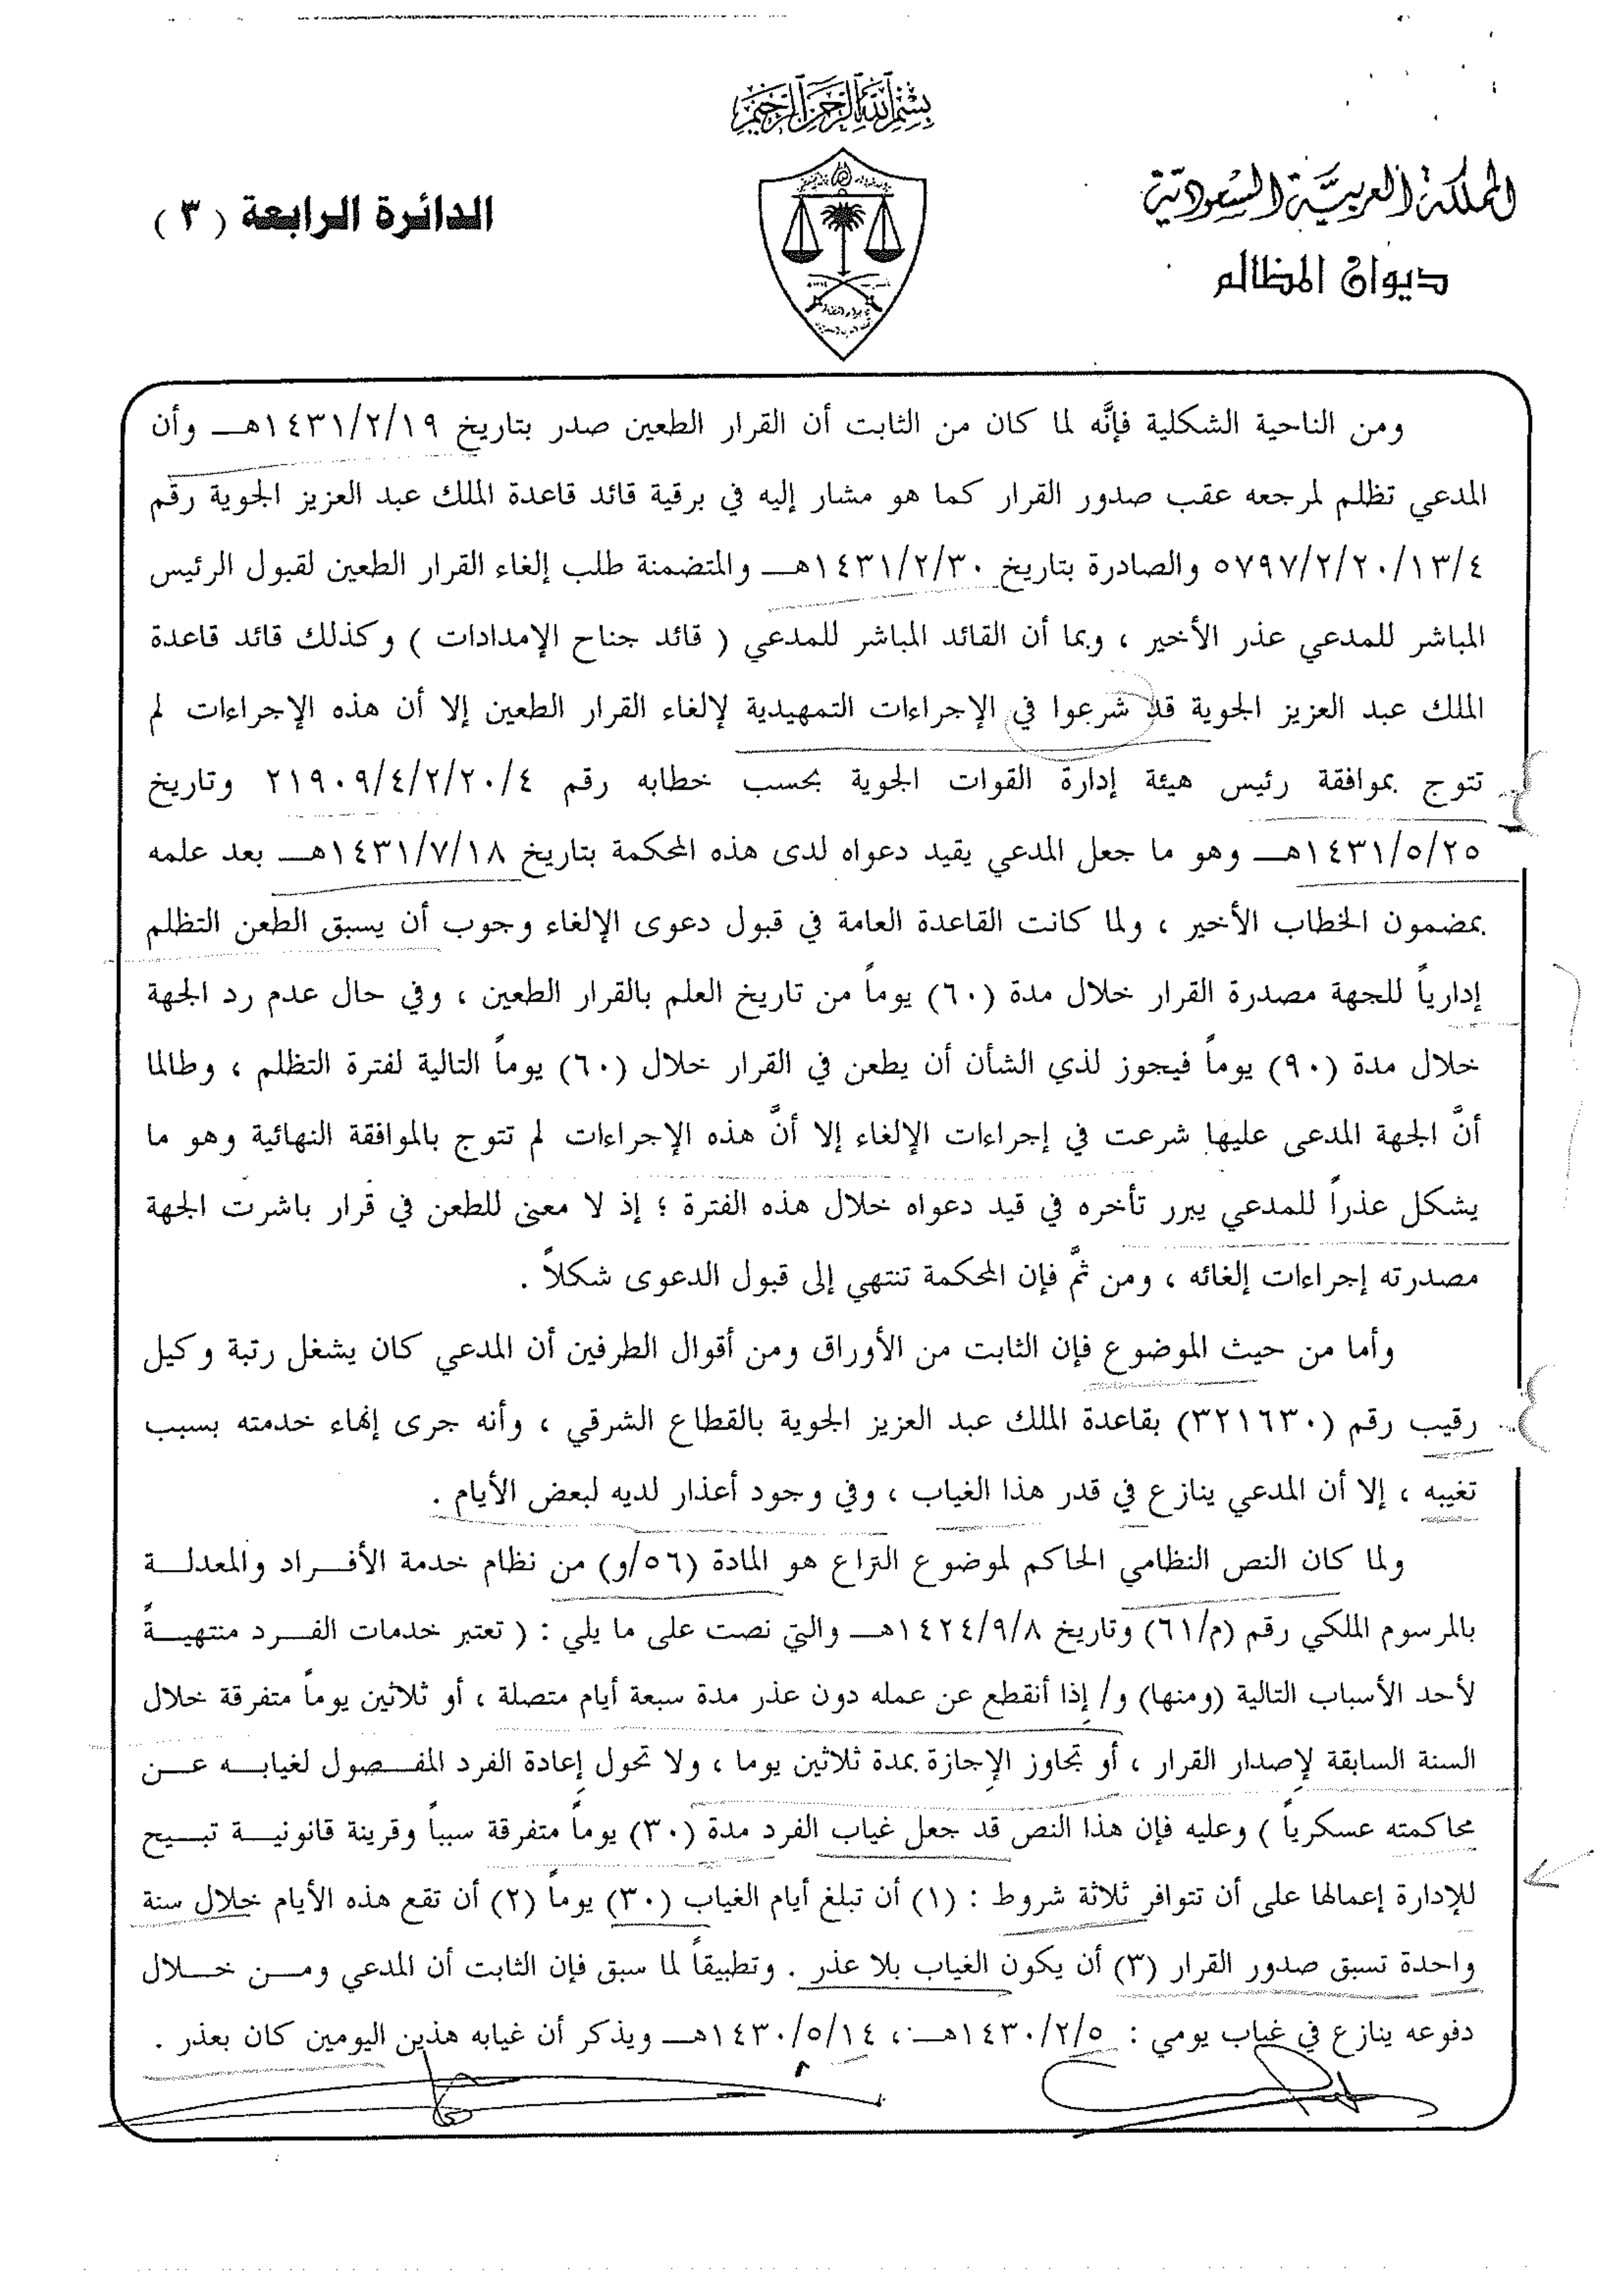 بسم الله الرحمن الرحيم
المملكة العربية السعودية
ديوان المظالم
الدائرة الرابعة ( ٣ )
ومن الناحية الشكلية فإنَّه لما كان من الثابت أن القرار الطعين صدر بتاريخ ١٤٣١/٢/١٩هـ وأن
المدعي تظلم لمرجعه عقب صدور القرار كما هو مشار إليه في برقية قائد قاعدة الملك عبد العزيز الجوية رقم
٥٧٩٧/٢/٢٠/١٣/٤ والصادرة بتاريخ ١٤٣١/٢/٣٠هـ والمتضمنة طلب إلغاء القرار الطعين لقبول الرئيس
المباشر للمدعي عذر الأخير ، وبما أن القائد المباشر للمدعي ( قائد جناح الإمدادات ) وكذلك قائد قاعدة
الملك عبد العزيز الجوية قد شرعوا في الإجراءات التمهيدية لإلغاء القرار الطعين إلا أن هذه الإجراءات لم
تتوج بموافقة رئيس هيئة إدارة القوات الجوية بحسب خطابه رقم ٢١٩٠٩/٤/٢/٢٠/٤ وتاريخ
١٤٣١/٥/٢٥هـ وهو ما جعل المدعي يقيد دعواه لدى هذه المحكمة بتاريخ ١٤٣١/٧/١٨هـ بعد علمه
بمضمون الخطاب الأخير ، ولما كانت القاعدة العامة في قبول دعوى الإلغاء وجوب أن يسبق الطعن التظلم
إدارياً للجهة مصدرة القرار خلال مدة (٦٠) يوماً من تاريخ العلم بالقرار الطعين ، وفي حال عدم رد الجهة
خلال مدة (٩٠) يوماً فيجوز لذي الشأن أن يطعن في القرار خلال (٦٠) يوماً التالية لفترة التظلم ، وطالما
أنَّ الجهة المدعى عليها شرعت في إجراءات الإلغاء إلا أنَّ هذه الإجراءات لم تتوج بالموافقة النهائية وهو ما
يشكل عذراً للمدعي يبرر تأخره في قيد دعواه خلال هذه الفترة ؛ إذ لا معنى للطعن في قرار باشرت الجهة
مصدرته إجراءات إلغائه ، ومن ثمَّ فإن المحكمة تنتهي إلى قبول الدعوى شكلاً .
وأما من حيث الموضوع فإن الثابت من الأوراق ومن أقوال الطرفين أن المدعي كان يشغل رتبة وكيل
رقيب رقم (٣٢١٦٣٠) بقاعدة الملك عبد العزيز الجوية بالقطاع الشرقي ، وأنه جرى إنهاء خدمته بسبب
تغيبه ، إلا أن المدعي ينازع في قدر هذا الغياب ، وفي وجود أعذار لديه لبعض الأيام .
ولما كان النص النظامي الحاكم لموضوع النزاع هو المادة (٥٦/و) من نظام خدمة الأفراد والمعدلة
بالمرسوم الملكي رقم (م/٦١) وتاريخ ١٤٢٤/٩/٨هـ والتي نصت على ما يلي : ( تعتبر خدمات الفرد منتهيةً
لأحد الأسباب التالية (ومنها) و/ إذا أنقطع عن عمله دون عذر مدة سبعة أيام متصلة ، أو ثلاثين يوماً متفرقة خلال
السنة السابقة لإصدار القرار ، أو تجاوز الإجازة بمدة ثلاثين يوما ، ولا تحول إعادة الفرد المفصول لغيابه عن
محاكمته عسكرياً ) وعليه فإن هذا النص قد جعل غياب الفرد مدة (٣٠) يوماً متفرقة سبباً وقرينة قانونية تبيح
للإدارة إعمالها على أن تتوافر ثلاثة شروط : (١) أن تبلغ أيام الغياب (٣٠) يوماً (٢) أن تقع هذه الأيام خلال سنة
واحدة تسبق صدور القرار (٣) أن يكون الغياب بلا عذر . وتطبيقاً لما سبق فإن الثابت أن المدعي ومن خلال
دفوعه ينازع في غياب يومي : ١٤٣٠/٢/٥هـ ، ١٤٣٠/٥/١٤هـ ويذكر أن غيابه هذين اليومين كان بعذر .